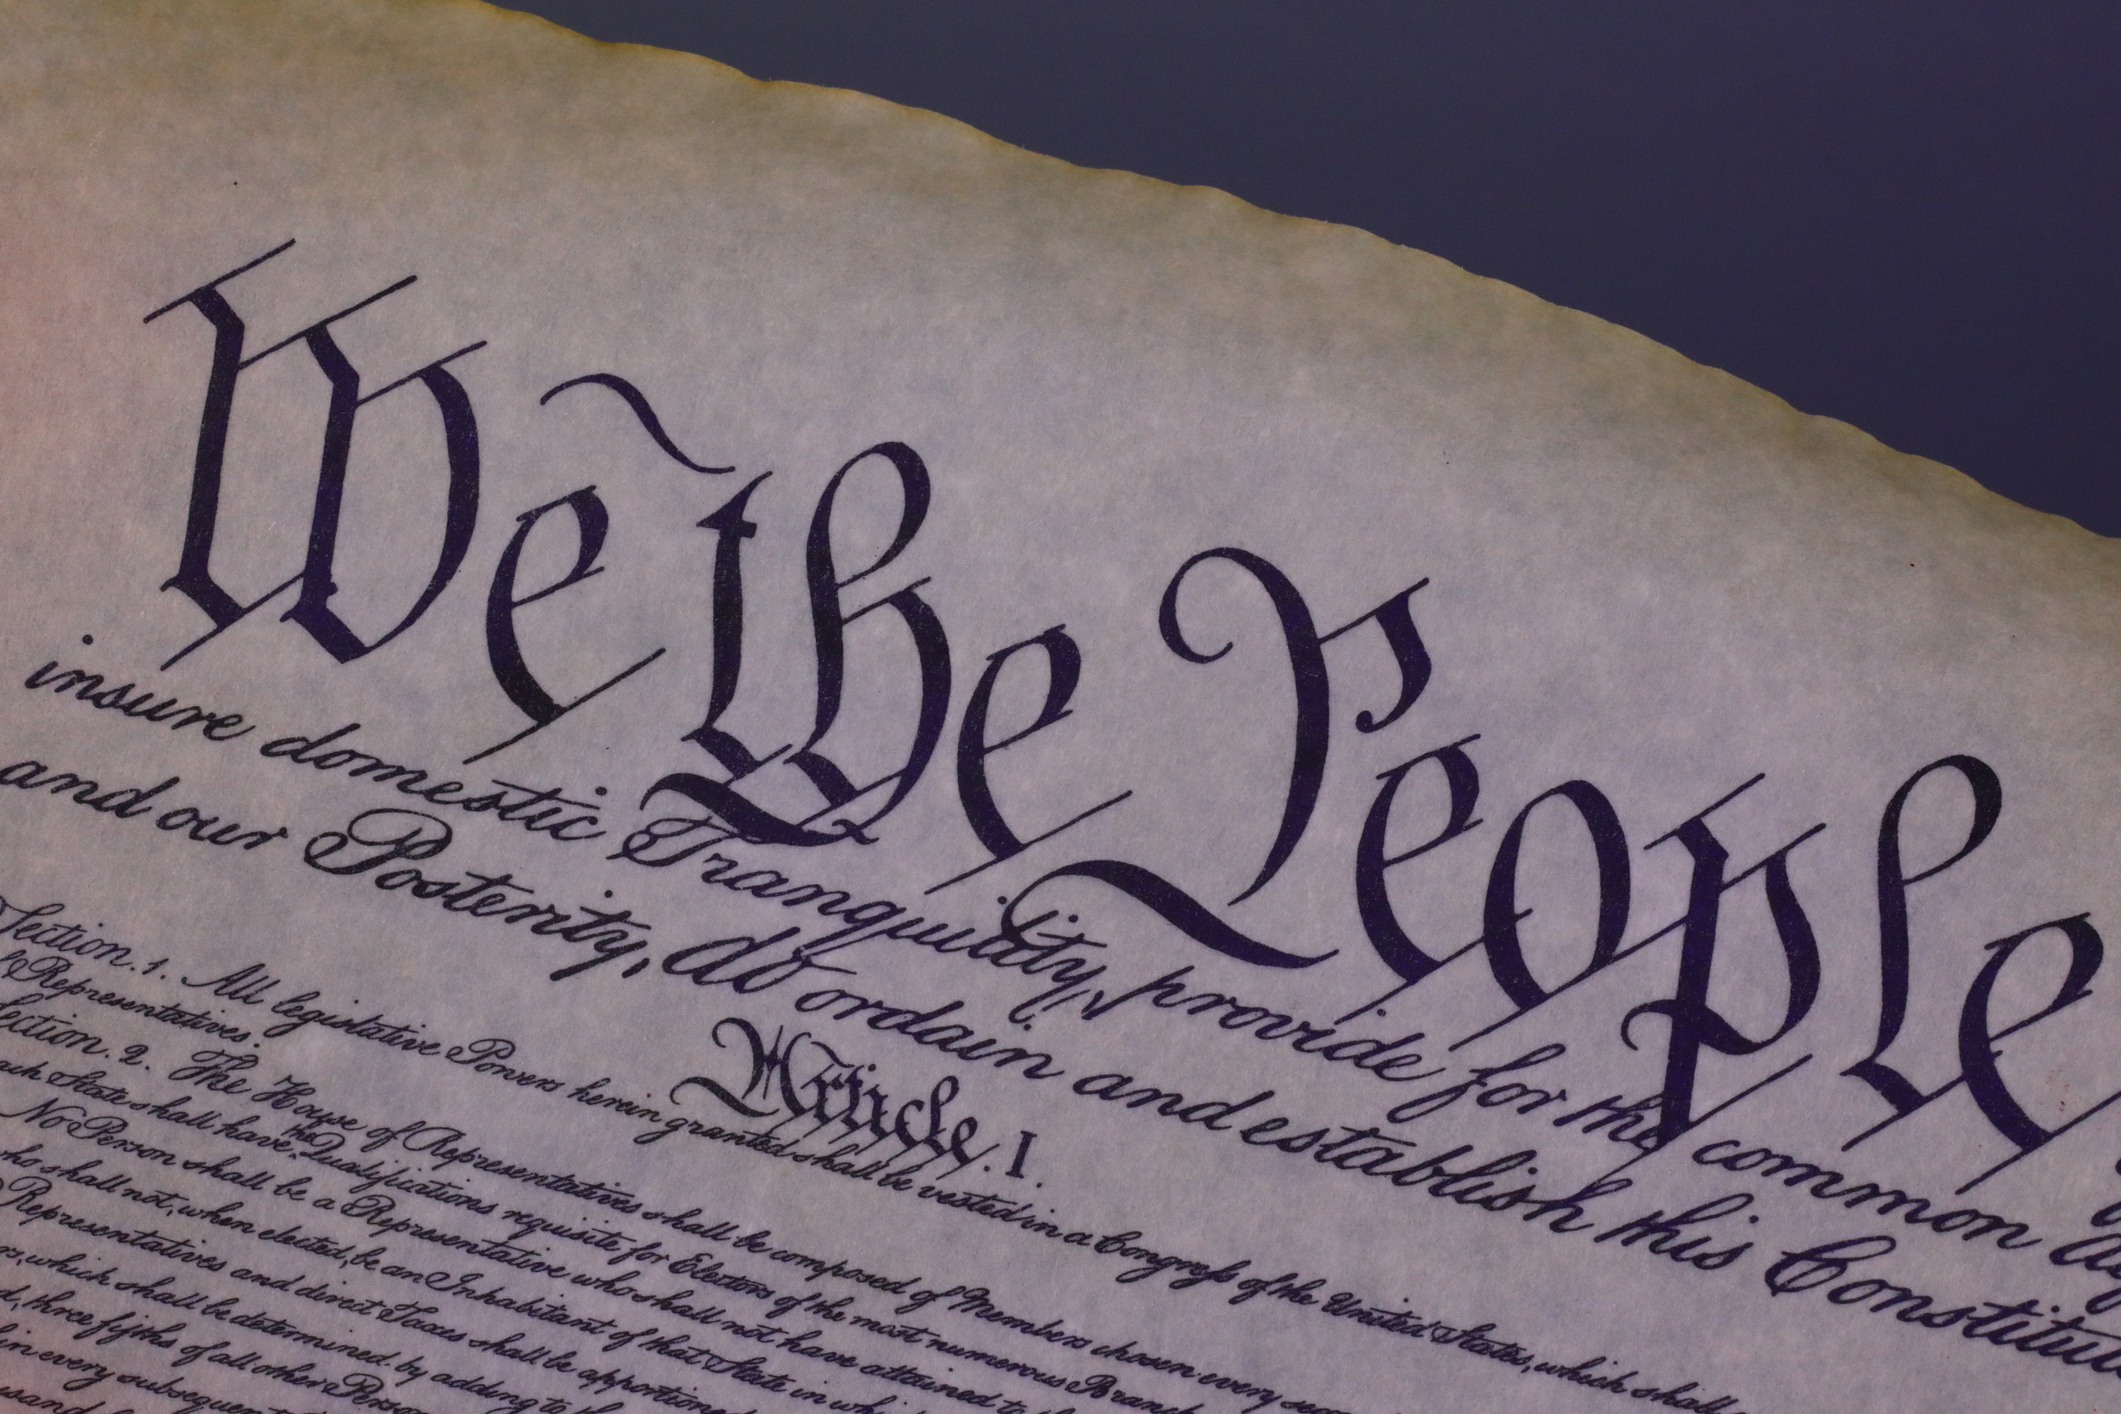 We the People
insure domestic Tranquility, provide for the common
and our Posterity, do ordain and establish this
Article. I.
Section. 1. All legislative Powers herein granted shall be vested in a Congress of the United States, which shall
Representatives.
Section. 2. The House of Representatives shall be composed of Members chosen every
State shall have the Qualifications requisite for Electors of the most numerous
No Person shall be a Representative who shall not have attained to
shall not, when elected, be an Inhabitant of that State in
Representatives and direct Taxes shall be apportioned
which shall be determined by adding to
three fifths of all other
in every